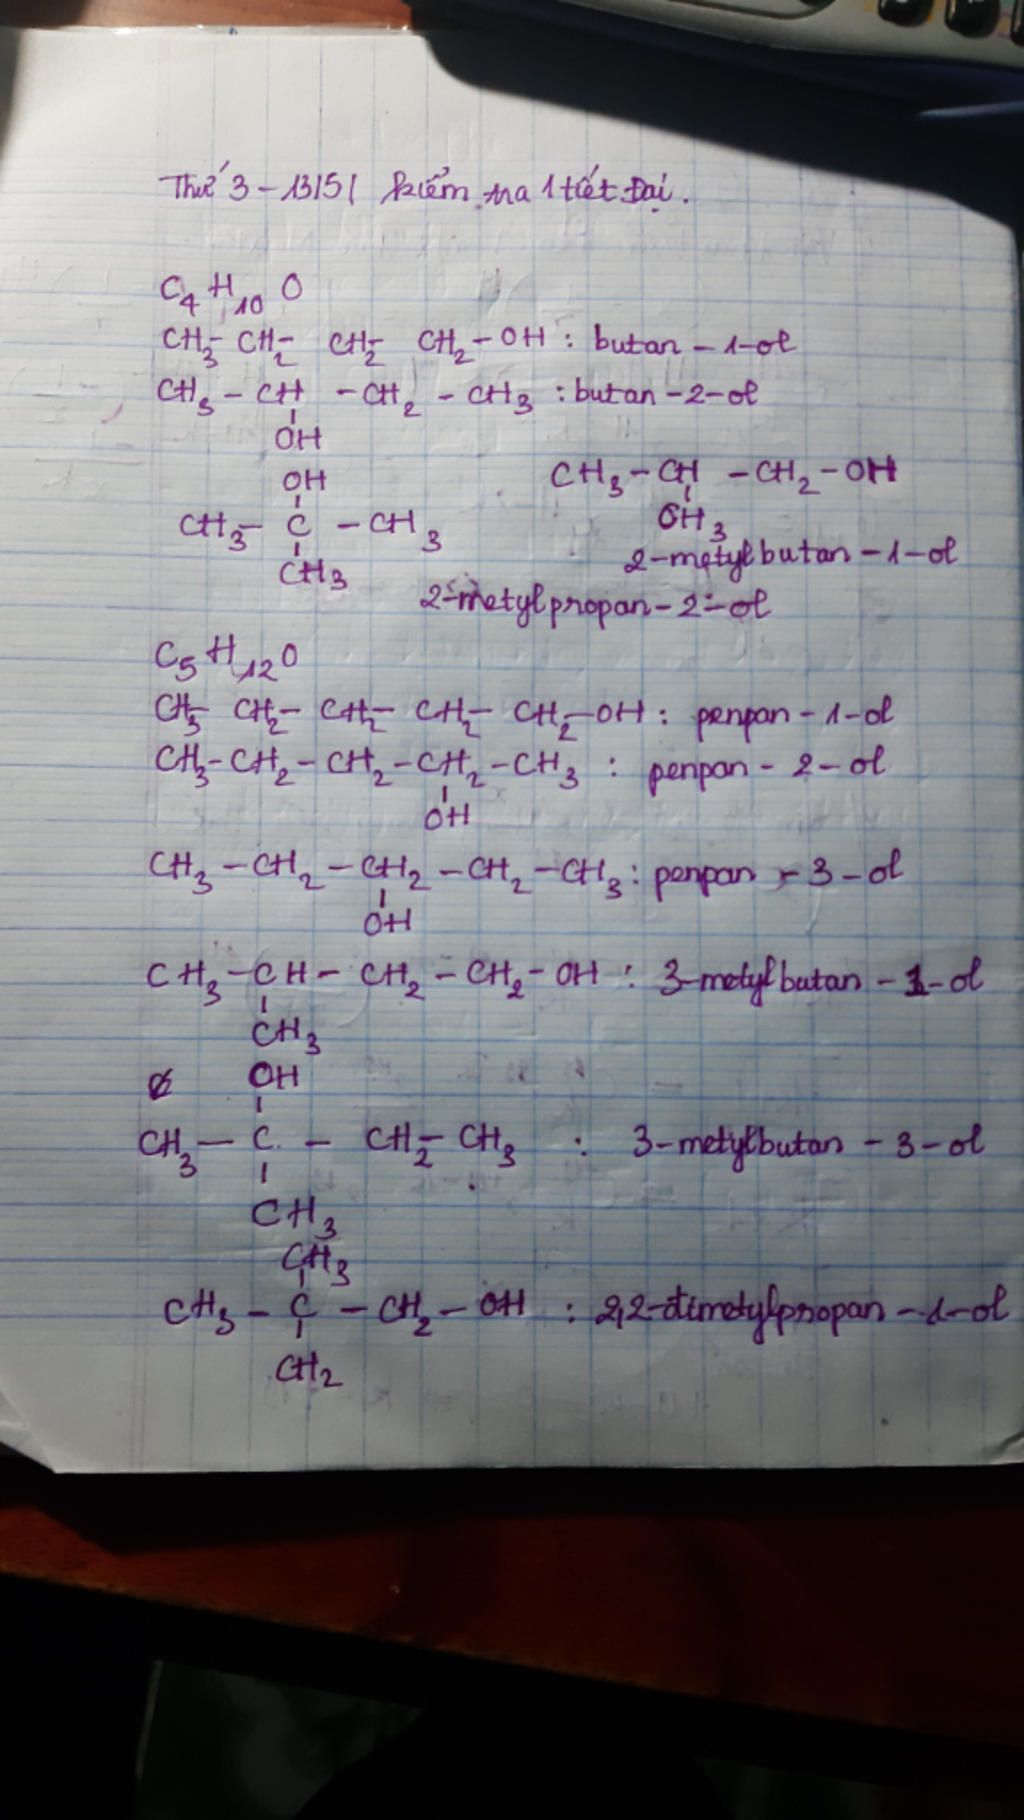 Thứ 3 - 13/5/ kiểm tra 1 tiết Đại.
C4H10O
CH3- CH2- CH2- CH2-OH: butan-1-ol
CH3-CH-CH2-CH3: butan-2-ol
OH
OH
CH3-CH-CH2-OH
CH3-C-CH3
CH3
2-metylbutan-1-ol
CH3
2-metylpropan-2-ol
C5H12O
CH3- CH2- CH2- CH2- CH2-OH: penpan-1-ol
CH3-CH2-CH2-CH2-CH3: penpan-2-ol
OH
CH3-CH2-CH2-CH2-CH3: penpan-3-ol
OH
CH3-CH-CH2-CH2-OH: 3-metylbutan-1-ol
CH3
OH
CH3-C-CH2-CH3: 3-metylbutan-3-ol
CH3
CH3
CH3-C-CH2-OH: 2,2-đimetylpropan-1-ol
CH2